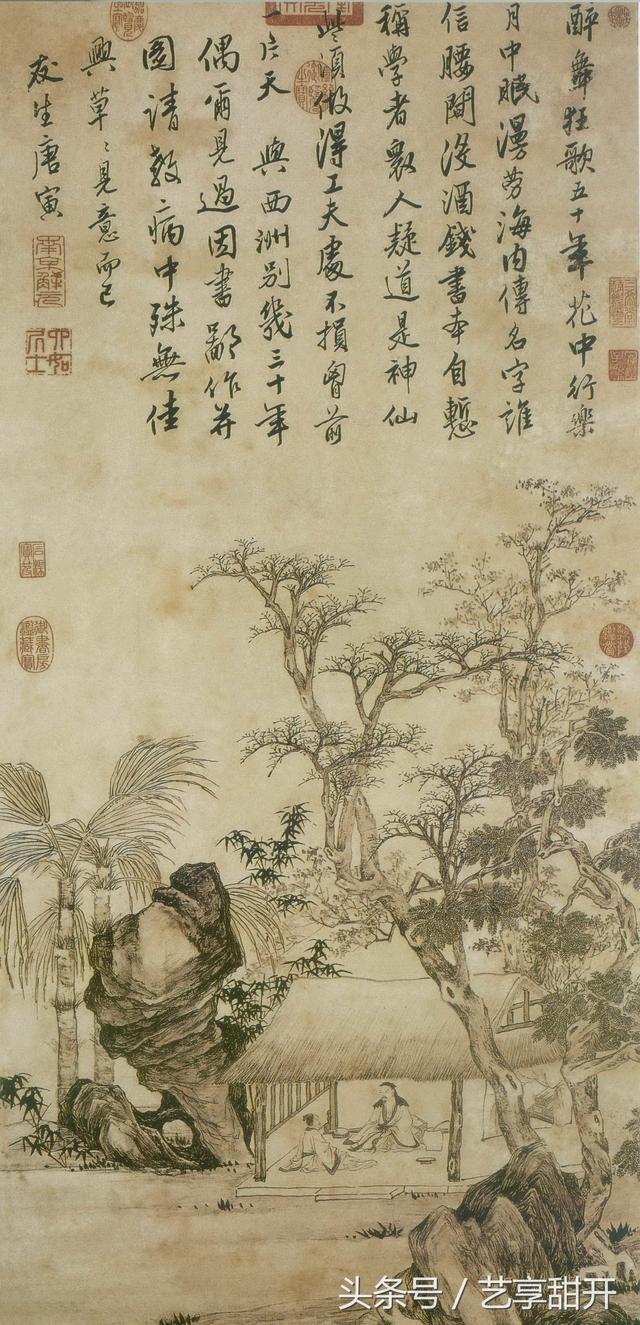 醉舞狂歌五十年花中行樂
月中眠漫勞海内傳名字誰
信腰間没酒錢書本自慙
稱學者衆人疑道是神仙
些須做得工夫處不損胷前
一片天 與西洲别幾三十年
偶爾見過因書鄙作并
圖請教病中殊無佳
興草〻見意而已
友生唐寅
南京解元
六如居士
御書房鑑藏寶
头条号 / 艺享甜开